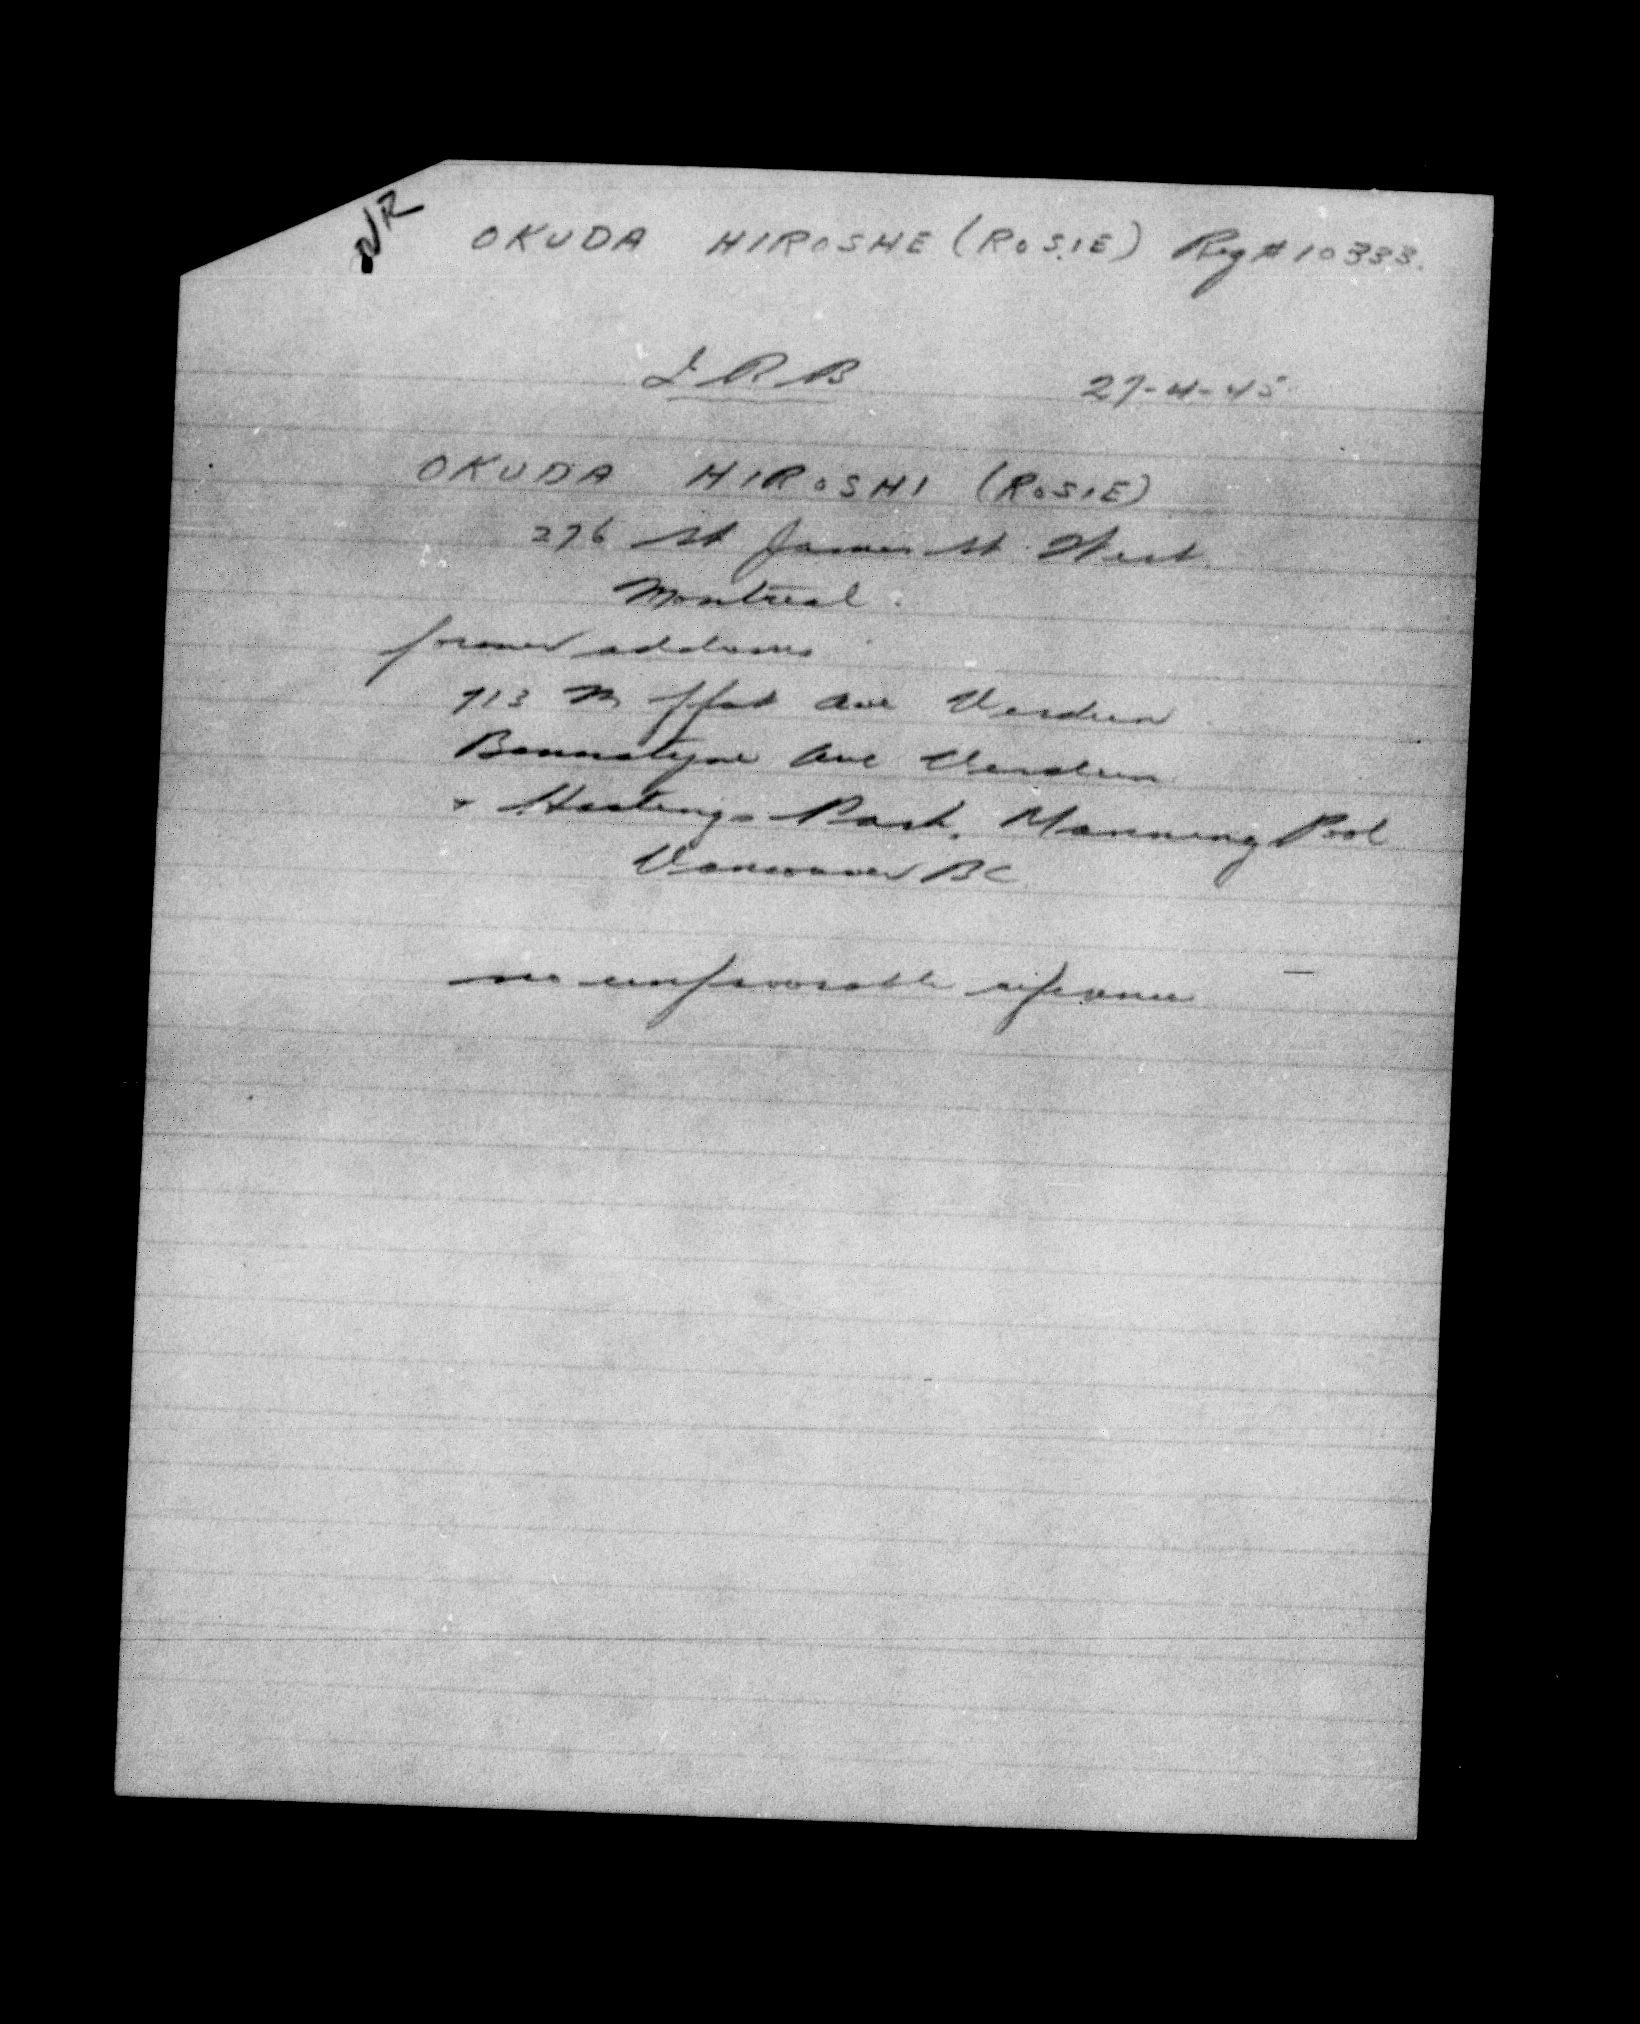 NR
OKUDA HIROSHE (ROSIE) Reg # 10333.
I R B 27-4-45
OKUDA HIROSHI (ROSIE)
276 St James St. West
Montreal.
former address
713 Moffat Ave Verdun
Bannatyne Ave Verdun
+ Hastings Park, Manning Pool
Vancouver BC
no unfavorable reference —